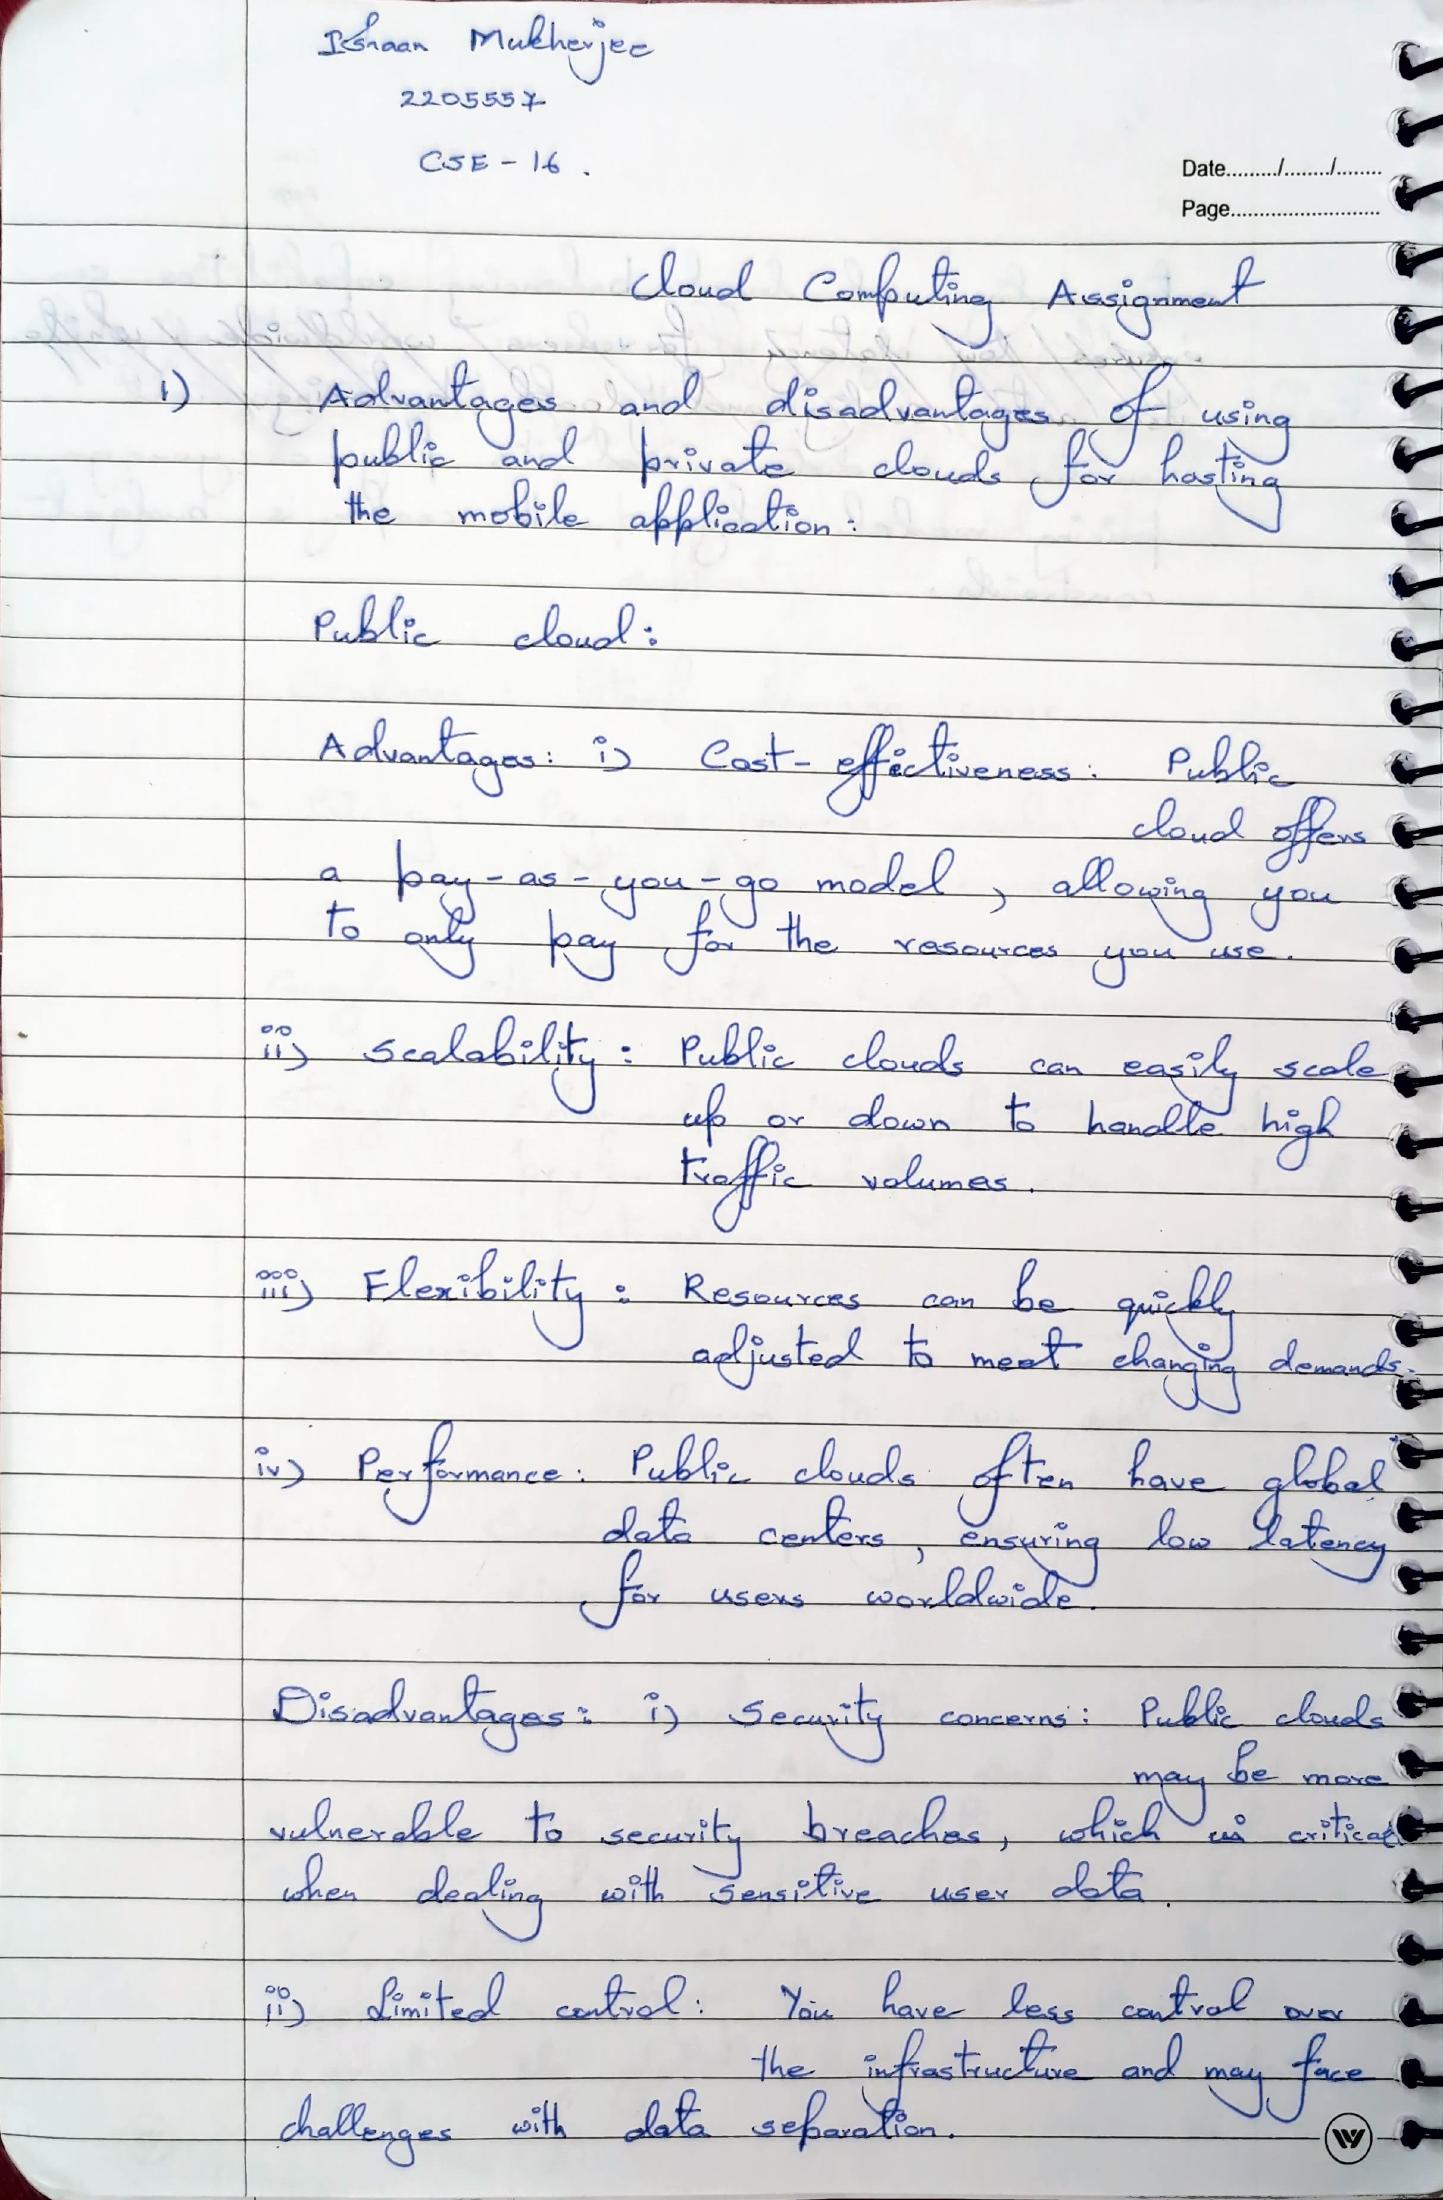 Ishaan Mukherjee
2205557
CSE - 16.
Date........./......../........
Page............................
Cloud Computing Assignment
1) Advantages and disadvantages of using
public and private clouds for hosting
the mobile application:
Public cloud:
Advantages: i) Cost-effectiveness: Public
cloud offers
a pay-as-you-go model, allowing you
to only pay for the resources you use.
ii) Scalability: Public clouds can easily scale
up or down to handle high
traffic volumes.
iii) Flexibility: Resources can be quickly
adjusted to meet changing demands.
iv) Performance: Public clouds often have global
data centers, ensuring low latency
for users worldwide.
Disadvantages: i) Security concerns: Public clouds
may be more
vulnerable to security breaches, which is critical
when dealing with sensitive user data.
ii) Limited control: You have less control over
the infrastructure and may face
challenges with data separation.
W